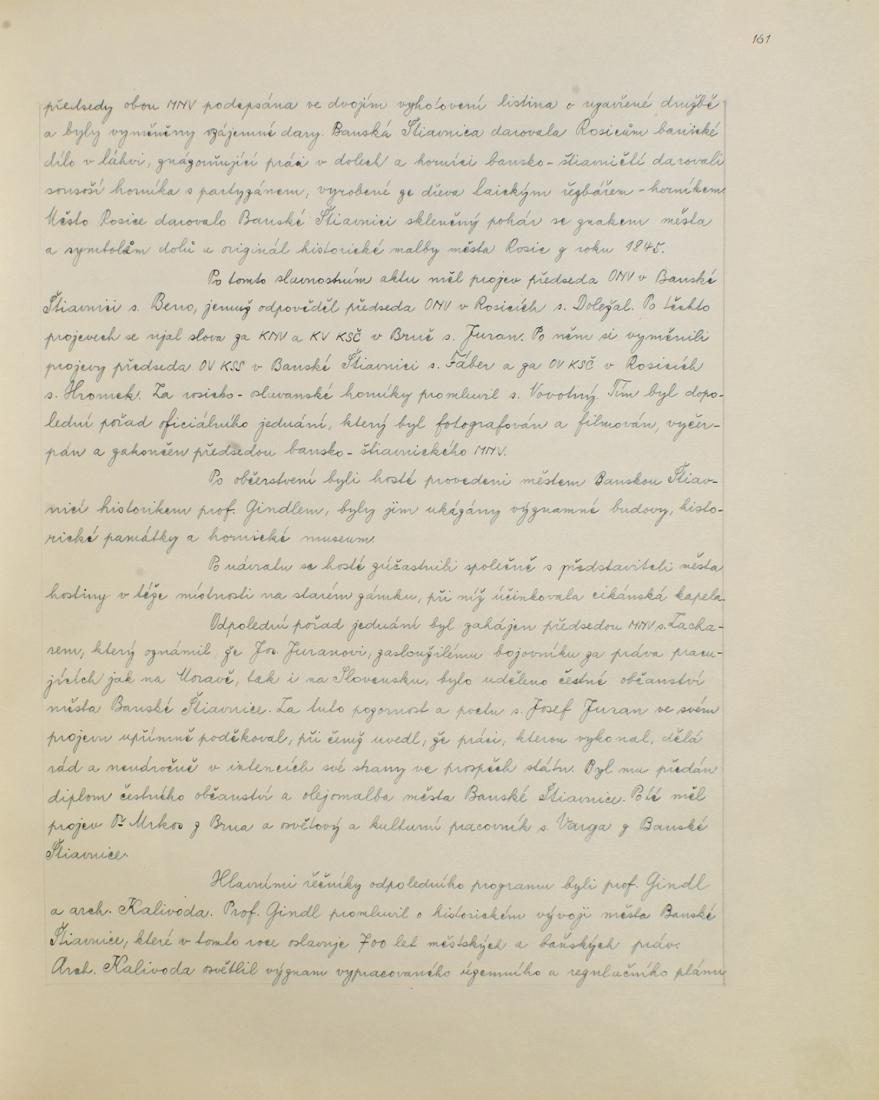 161
předsedy obou MNV podepsána ve dvojím vyhotovení listina o uzavřené družbě
a byly vyměněny vzájemné dary. Banská Štiavnica darovala Rosicům banické
dílo v láhvi, znázorňující práci v dolech a horníci bansko-štiavničtí darovali
sousoší horníka s partyzánem, vyrobené ze dřeva laickým řezbářem - horníkem.
Město Rosice darovalo Banské Štiavnici skleněný pohár se znakem města
a symbolům dolů a originál historické malby města Rosic z roku 1845.
Po tomto slavnostním aktu měl projev předseda ONV v Banské
Štiavnici s. Beno, jemuž odpověděl předseda ONV v Rosicích s. Doležal. Po těchto
projevech se ujal slova za KNV a KV KSČ v Brně s. Juran. Po něm si vyměnili
projevy předseda OV KSS v Banské Štiavnici s. Fáber a za OV KSČ v Rosicích
s. Hromek. Za rosicko-oslavanské horníky promluvil s. Vovotný. Tím byl dopo-
lední pořad oficiálního jednání, který byl fotografován a filmován, vyčer-
pán a zakončen předsedou bansko-štiavnického MNV.
Po občerstvení byli hosté provedeni městem Banskou Štiav-
nicí historikem prof. Gindlem, byly jim ukázány významné budovy, histo-
rické památky a hornické museum.
Po návratu se hosté zúčastnili společně s představiteli města
hostiny v téže místnosti na starém zámku, při níž účinkovala cikánská kapela.
Odpolední pořad jednání byl zahájen předsedou MNV s. Zacha-
rem, který oznámil, že Jos. Juranovi, zasloužilému bojovníku za práva pracu-
jících jak na Moravě, tak i na Slovensku, bylo uděleno čestné občanství
města Banské Štiavnice. Za tuto pozornost a poctu s. Josef Juran ve svém
projevu upřímně poděkoval, při čemž uvedl, že práci, kterou vykonal, dělá
rád a nenáročně v intencích své strany ve prospěch státu. Byl mu předán
diplom čestného občanství a olejomalba města Banské Štiavnice. Poté měl
projev Dr Mrkos z Brna a osvětový a kulturní pracovník s. Varga z Banské
Štiavnice.
Hlavními řečníky odpoledního programu byli prof. Gindl
a arch. Kalivoda. Prof. Gindl promluvil o historickém vývoji města Banské
Štiavnice, které v tomto roce oslavuje 700 let městských a baňských práv.
Arch. Kalivoda osvětlil význam vypracovaného územního a regulačního plánu